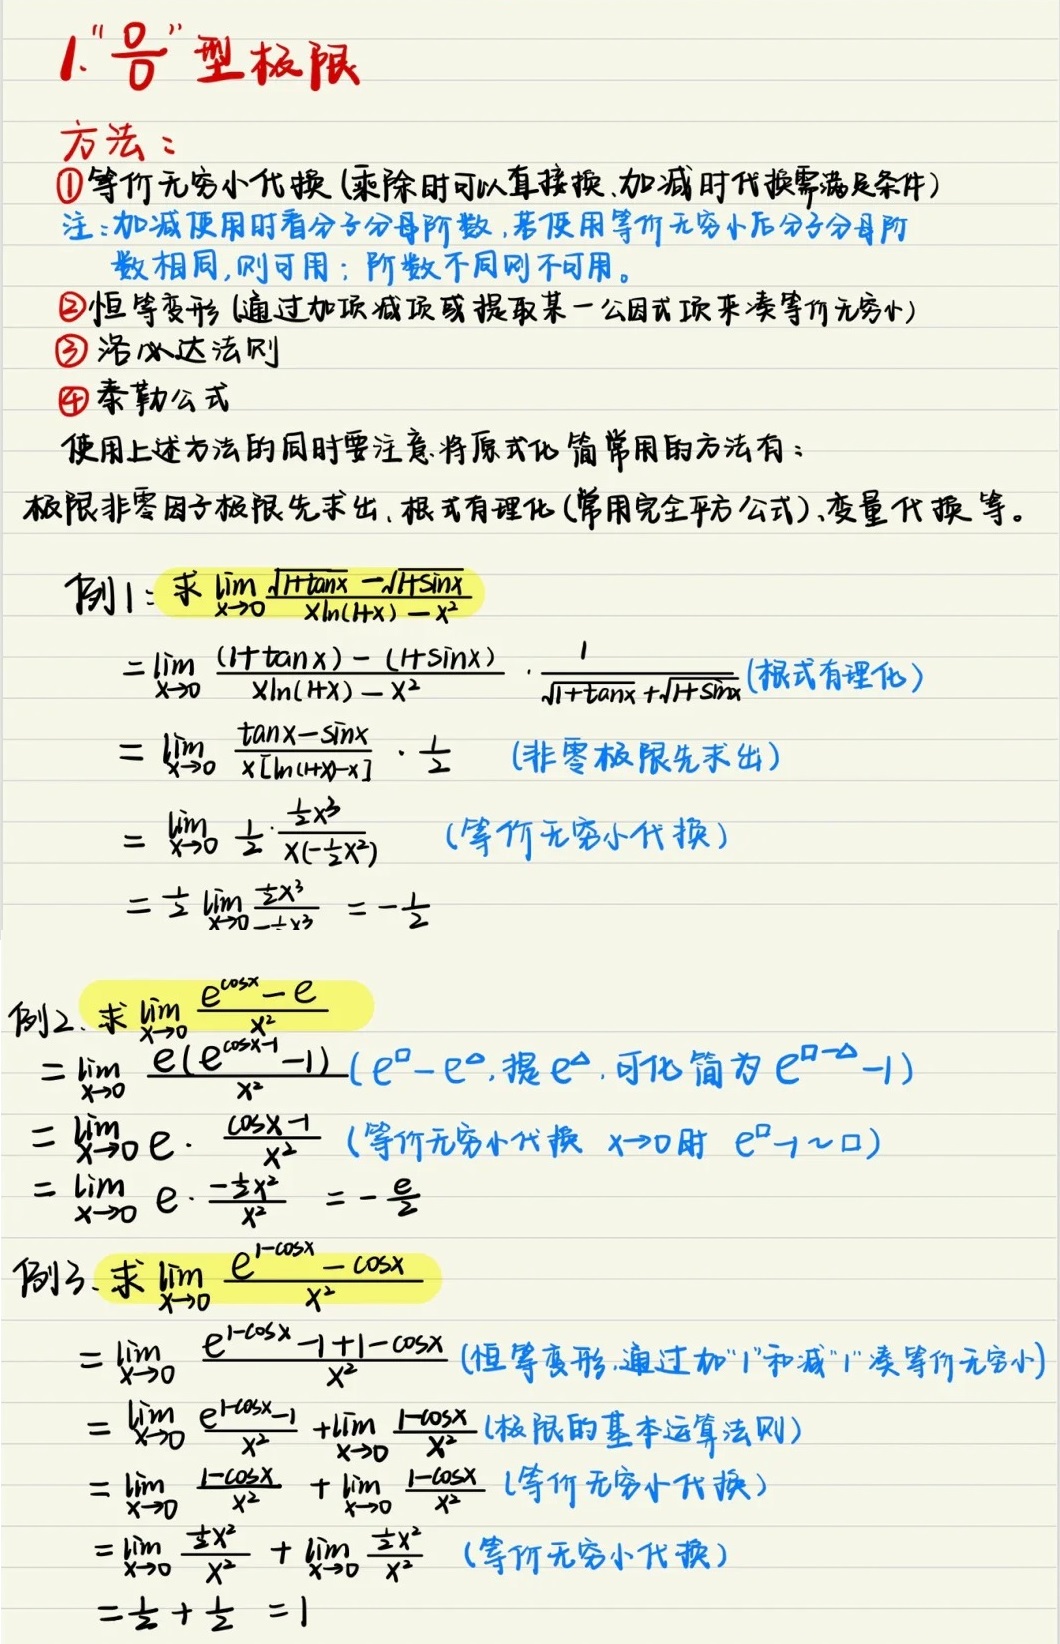 1. “0/0” 型极限
方法：
①等价无穷小代换(乘除时可以直接换、加减时代换需满足条件)
注：加减使用时看分子分母阶数，若使用等价无穷小后分子分母阶
数相同，则可用；阶数不同则不可用。
②恒等变形(通过加项减项或提取某一公因式项来凑等价无穷小)
③洛必达法则
④泰勒公式
使用上述方法的同时要注意将原式化简常用的方法有：
极限非零因子极限先求出、根式有理化(常用完全平方公式)、变量代换等。
例1：求 lim x→0 (√(1+tanx) − √(1+sinx)) / (xln(1+x) − x²)
= lim x→0 ((1+tanx) − (1+sinx)) / (xln(1+x) − x²) · 1 / (√(1+tanx) + √(1+sinx)) (根式有理化)
= lim x→0 (tanx−sinx) / (x[ln(1+x)−x]) · 1/2 (非零极限先求出)
= lim x→0 1/2 · (1/2 x³) / (x(−1/2 x²)) (等价无穷小代换)
= 1/2 lim x→0 (1/2 x³) / (−1/2 x³) = −1/2
例2. 求 lim x→0 (e^cosx − e) / x²
= lim x→0 e(e^(cosx−1) −1) / x² (e^□ − e^△，提e^△，可化简为 e^(□−△) −1)
= lim x→0 e · (cosx−1) / x² (等价无穷小代换 x→0时 e^□−1～□)
= lim x→0 e · (−1/2 x²) / x² = − e/2
例3. 求 lim x→0 (e^(1−cosx) − cosx) / x²
= lim x→0 (e^(1−cosx) −1+1−cosx) / x² (恒等变形，通过加“1”和减“1”凑等价无穷小)
= lim x→0 (e^(1−cosx) −1) / x² + lim x→0 (1−cosx) / x² (极限的基本运算法则)
= lim x→0 (1−cosx) / x² + lim x→0 (1−cosx) / x² (等价无穷小代换)
= lim x→0 (1/2 x²) / x² + lim x→0 (1/2 x²) / x² (等价无穷小代换)
= 1/2 + 1/2 = 1